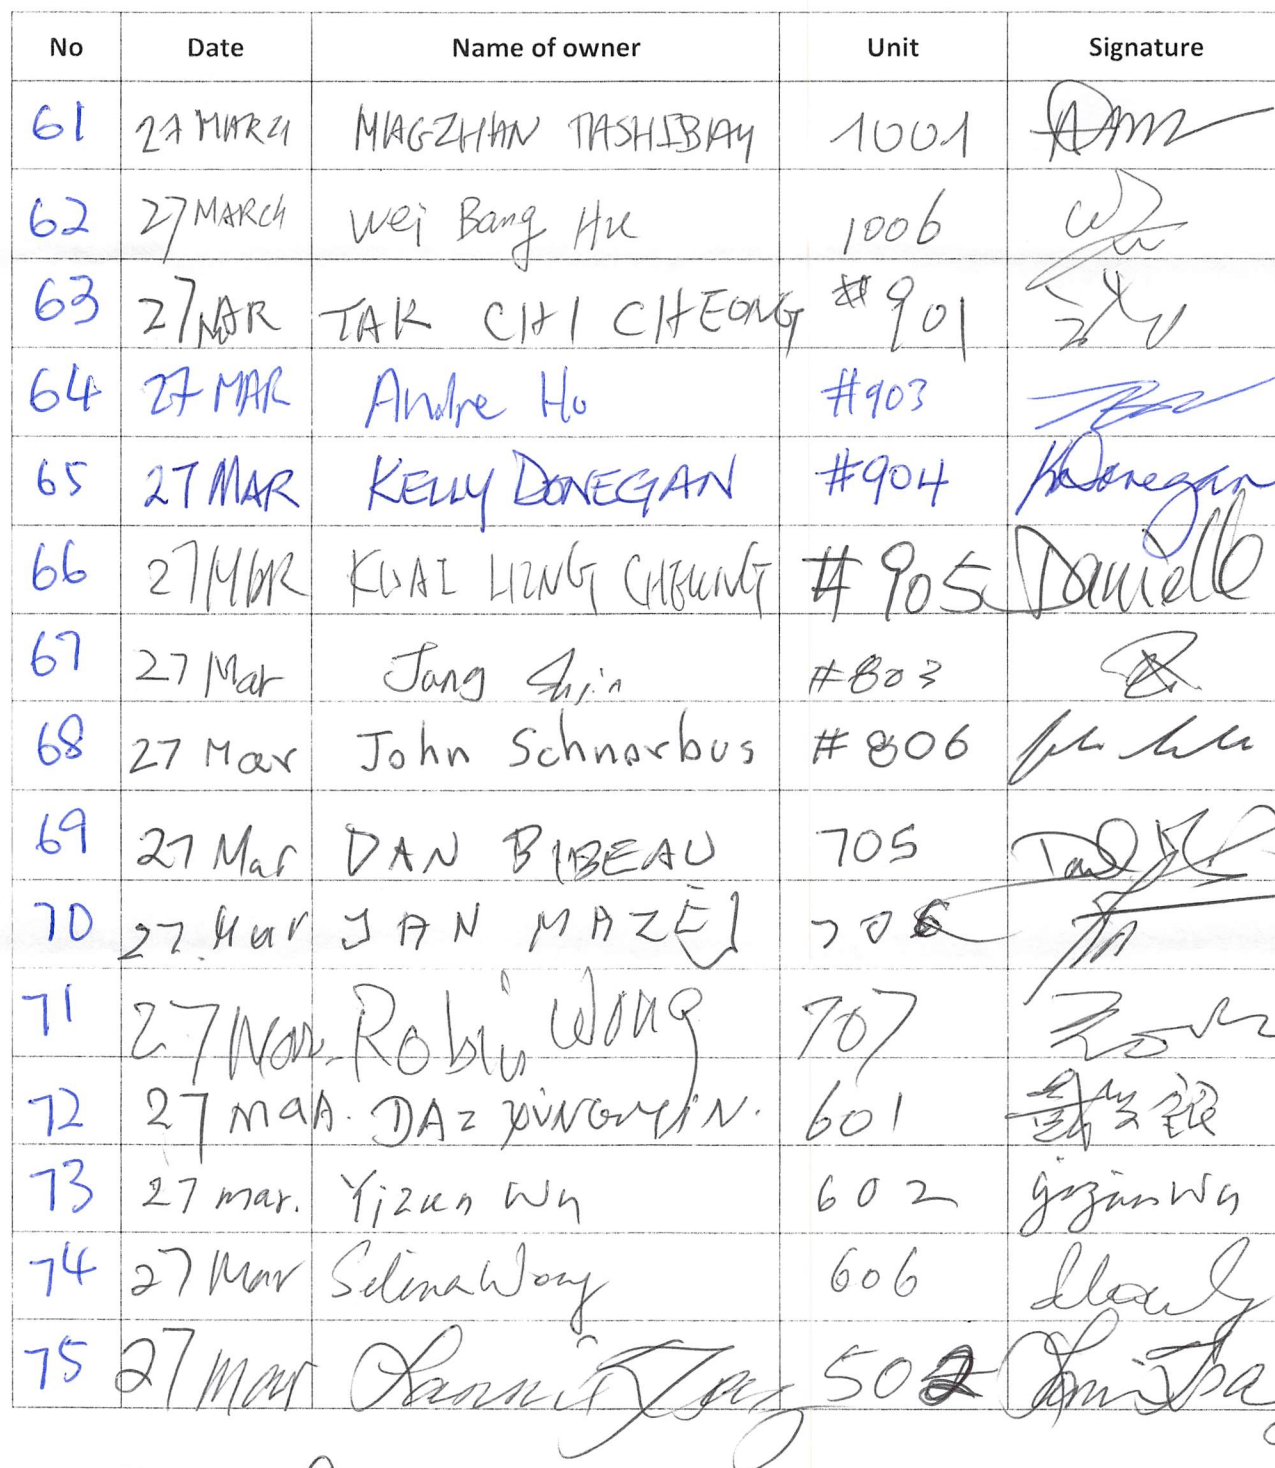 No Date Name of owner Unit Signature
61 27 MARCH MAGZHAN TASHIBAY 1001
62 27 MARCH Wei Bang Hu 1006
63 27 MAR TAK CHI CHEONG #901
64 27 MAR Andre Ho #903
65 27 MAR KELLY DONEGAN #904 KDonegan
66 27 MAR KUAI LIING CHEUNG #905 Danielle
67 27 Mar Jang Shin #803
68 27 Mar John Schnarbus #806
69 27 Mar DAN BIBEAU 705
70 27. Mar JAN MAZEJ 706
71 27 Mar. Robin Wong 707
72 27 maR. DAI XINGYIN. 601
73 27 mar. Yizun Wu 602 yizun Wu
74 27 Mar Selina Wong 606
75 27 mar 502